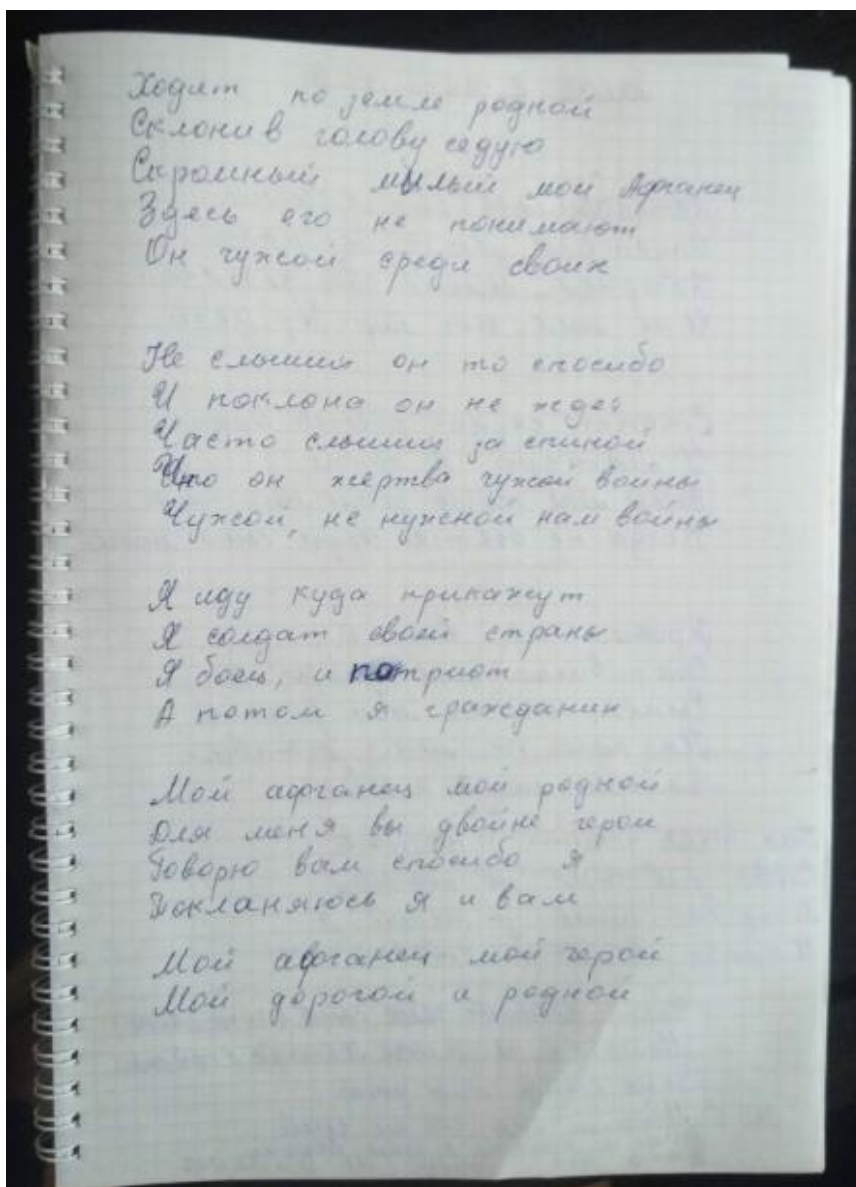 Ходит по земле родной
Склонив голову седую
Скромный милый мой Афганец
Здесь его не понимают
Он чужой среди своих
Не слышит он то спосибо
И поклона он не ждёт
Часто слышит за спиной
Что он жертва чужой войны
Чужой, не нужной нам войны
Я иду куда прикажут
Я солдат своей страны
Я боец, и патриот
А потом я гражданин
Мой афганец мой родной
Для меня вы двойне герои
Говорю вам спосибо я
Покланяюсь я и вам
Мой афганец мой герой
Мой дорогой и родной